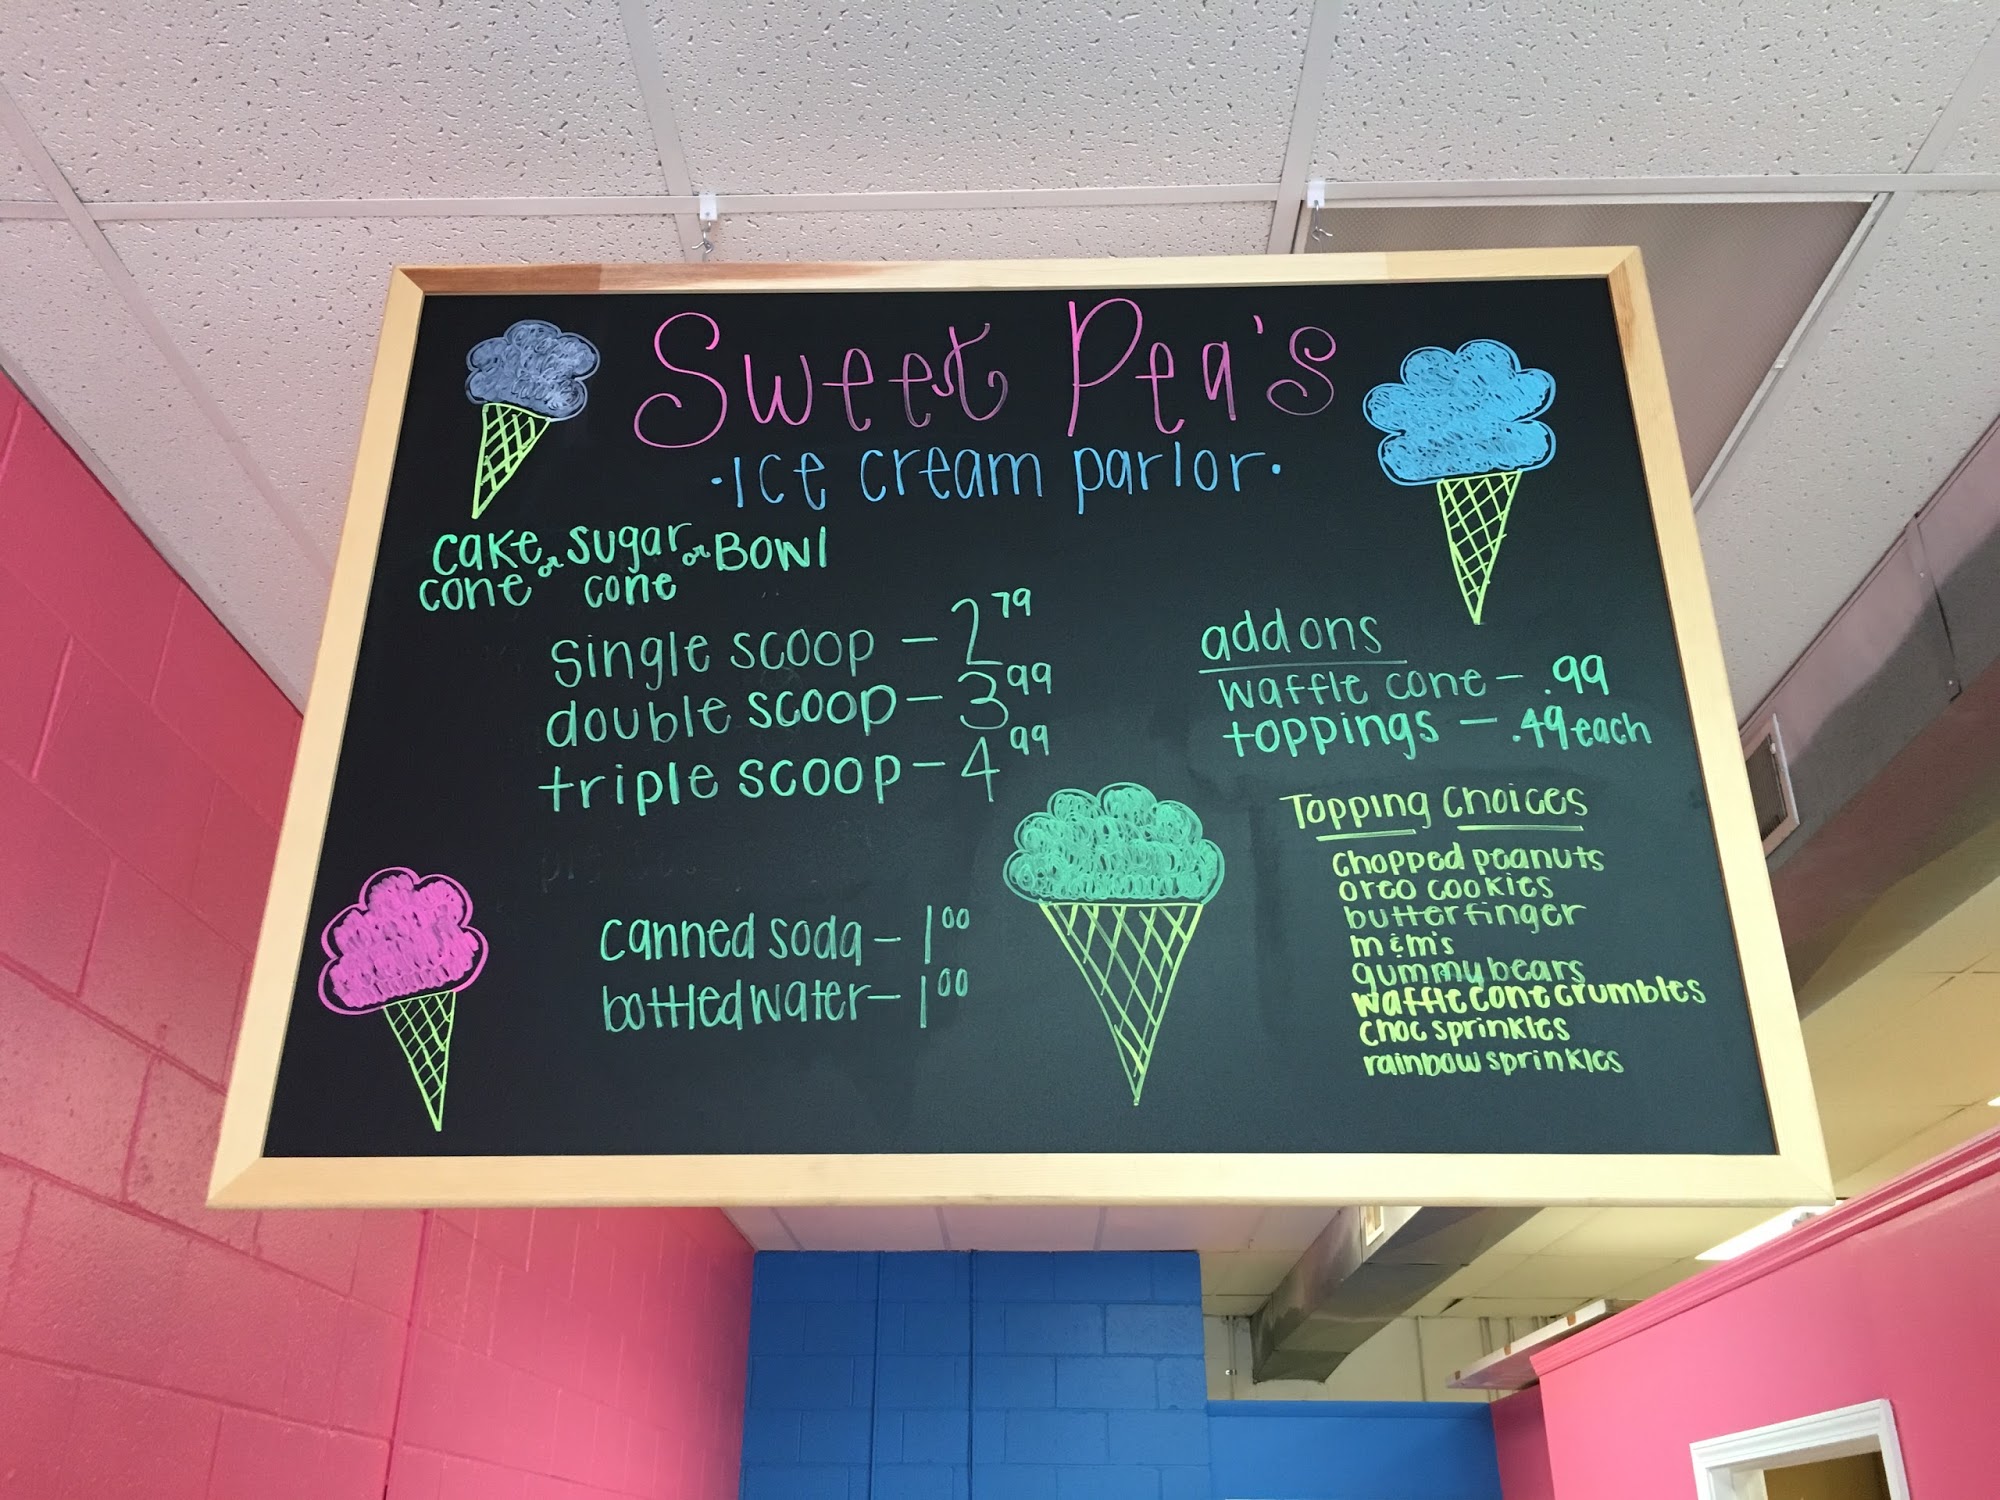 Sweet Pea's
·Ice cream parlor·
cake or sugar or BOWl
cone cone
single scoop - 2 79
double scoop - 3 99
triple scoop - 4 99
canned soda - 1 00
bottled water - 1 00
add ons
waffle cone - .99
toppings - .49 each
Topping Choices
chopped peanuts
oreo cookies
butterfinger
m&m's
gummy bears
waffle cone crumbles
choc sprinkles
rainbow sprinkles